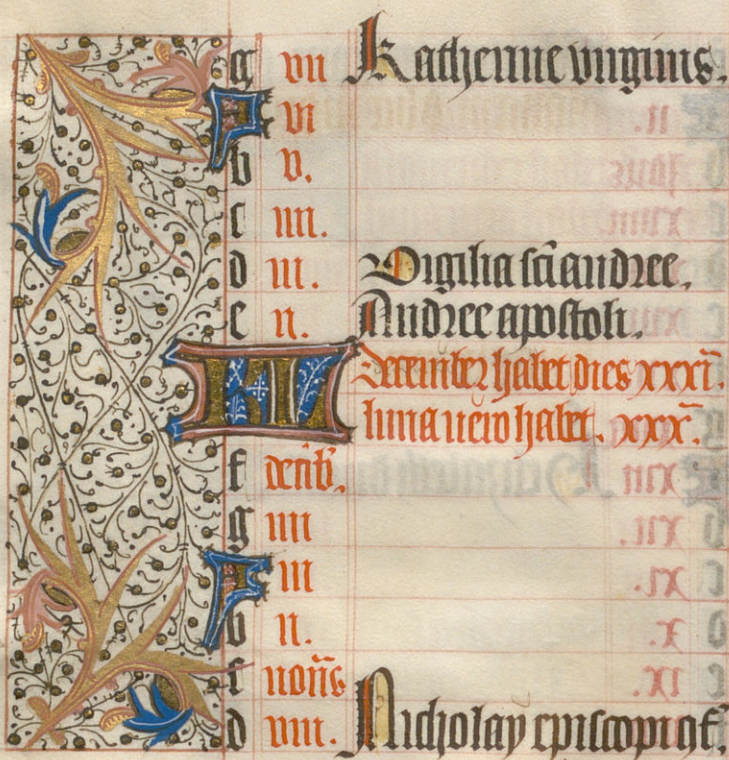 g vii Katherine virginis.
A vi
b v.
c iiii.
d iii. Vigilia sci andree.
e ii. Andree apostoli.
KL December habet dies xxxi.
luna vero habet. xxx.
f decēb.
g iiii
A iii
b ii.
c nonē
d viii. Nicholay episcopi et